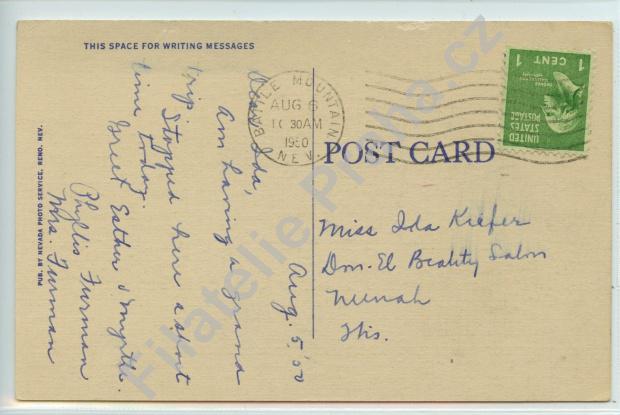 THIS SPACE FOR WRITING MESSAGES
Aug. 5, '50
Dear Ida,
Am having a grand
trip. Stopped here a short
time today.
Greet Esther & Myrtle.
Phyllis Furman
Mrs. Furman
PUB. BY NEVADA PHOTO SERVICE, RENO, NEV.
BATTLE MOUNTAIN
AUG 6
10 30AM
1950
NEV.
UNITED
STATES
POSTAGE
1 CENT 1
POST CARD
Miss Ida Kiefer
Don-El Beality Salon
Nenah
Wis.
Filatelie Praha.cz